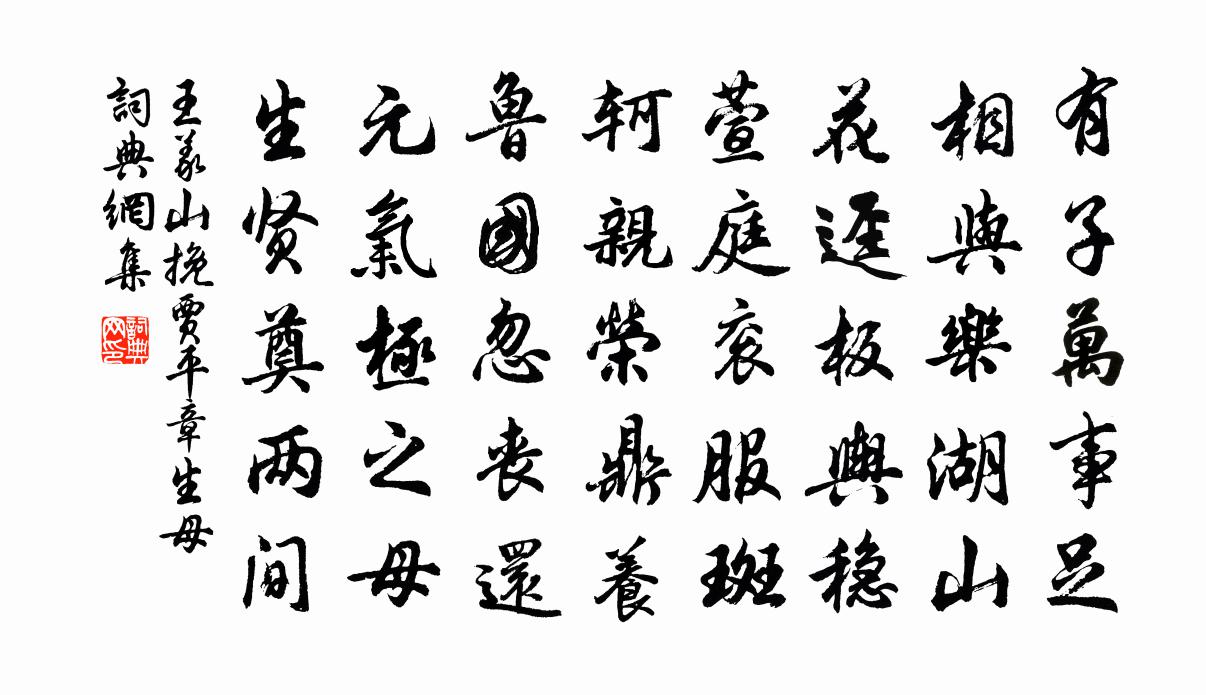 有子萬事足
相與樂湖山
花逕板輿穏
萱庭衮服斑
轲親榮鼎養
魯國忽丧還
元氣極之母
生贤奠两间
王義山挽賈平章生母
詞典網集
詞典网印